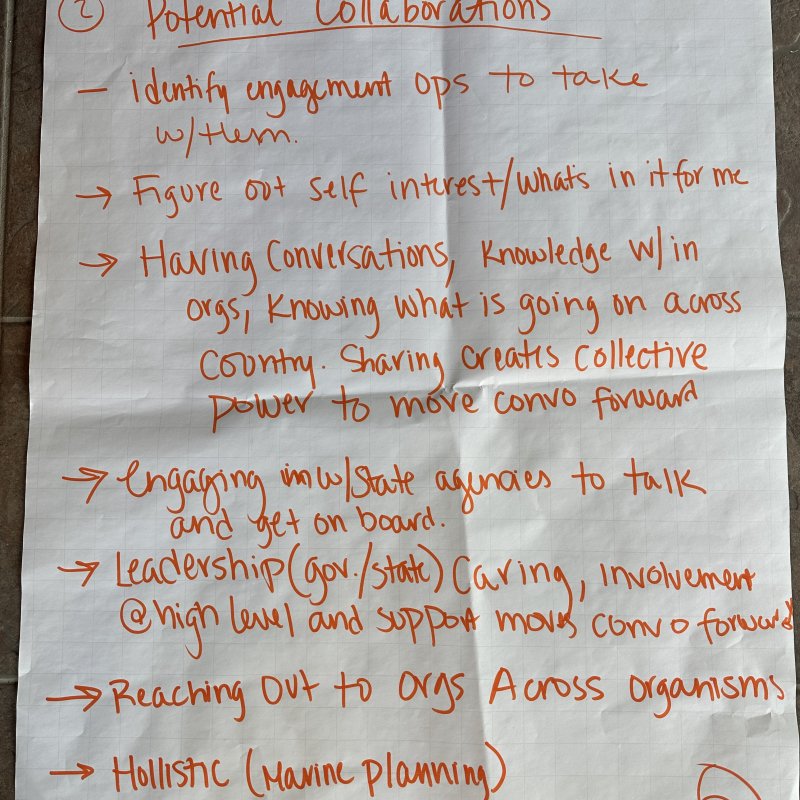 ② Potential Collaborations
— identify engagement ops to take
w/them.
→ Figure out self interest/whats in it for me
→ Having Conversations, Knowledge w/in
orgs, Knowing what is going on across
Country. Sharing creates collective
power to move convo forward
→ Engaging w/State agencies to talk
and get on board.
→ Leadership (gov./state) Caring, involvement
@ high level and support moves convo forward
→ Reaching Out to Orgs Across organisms
→ Hollistic (Marine planning)